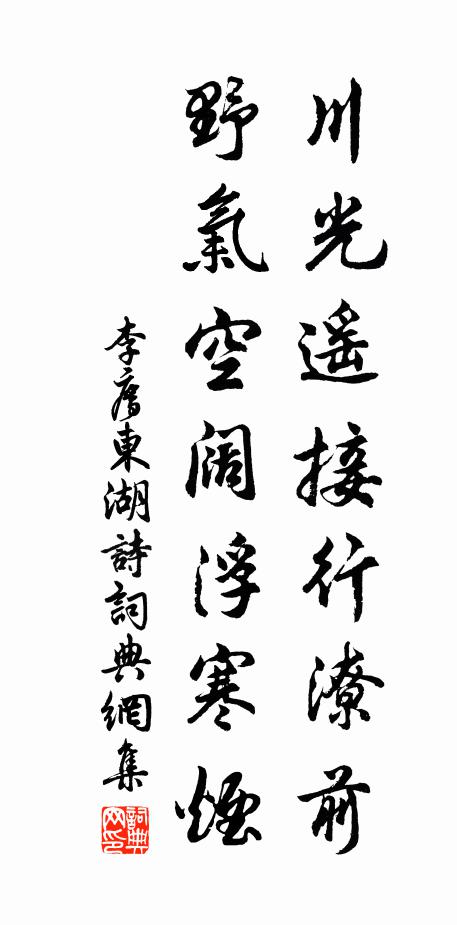 川光遥接行潦前
野氣空阔浮寒煙
李廌東湖詩詞典網集
詞典網印